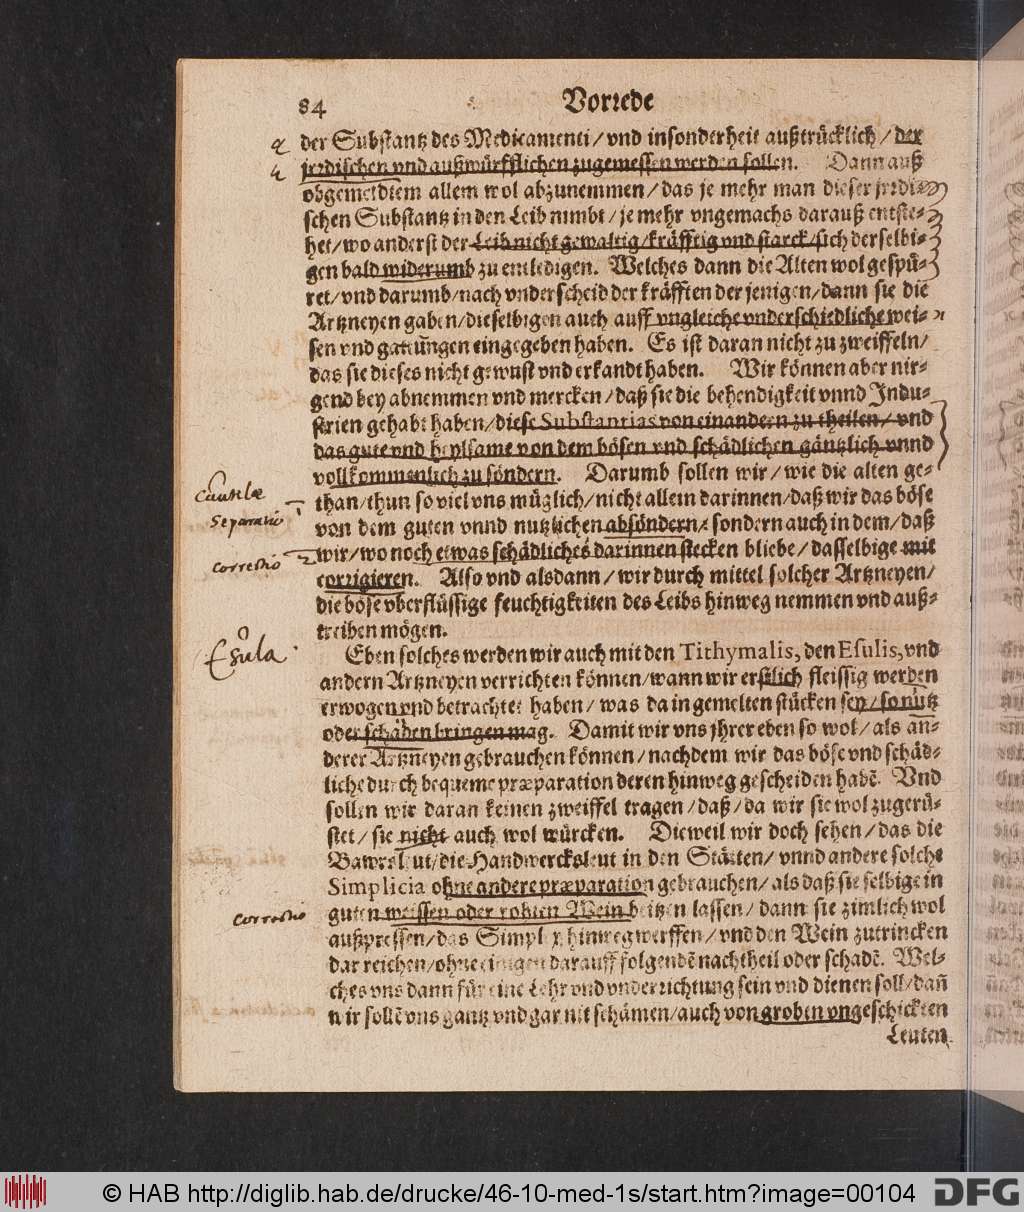 84 Vorrede
der Substantz des Medicamenti / vnd insonderheit außtrücklich / der
jrrdischen vnd außwürfflichen zugemessen werden sollen. Dann auß
obgemeldtem allem wol abzunemmen / das je mehr man dieser jrrdi-
schen Substantz in den Leib nimbt / je mehr vngemachs darauß entste-
het / wo anderst der Leib nicht gewaltig / kräfftig vnd starck / sich derselbi-
gen bald widerumb zu entledigen. Welches dann die Alten wol gespü-
ret / vnd darumb / nach vnderscheid der kräfften der jenigen / dann sie die
Artzneyen gaben / dieselbigen auch auff vngleiche vnderschiedliche wei-
sen vnd gattūngen eingegeben haben. Es ist daran nicht zu zweiffeln /
das sie dieses nicht gewust vnd erkandt haben. Wir können aber nir-
gend bey abnemmen vnd mercken / daß sie die behendigkeit vnnd Indu-
strien gehabt haben / diese Substantias von einandern zu theilen / vnd
das gute vnd heylsame von dem bösen vnd schädlichen gäntzlich vnnd
vollkommenlich zu söndern. Darumb sollen wir / wie die alten ge-
Cautelæ
than / thun so viel vns müglich / nicht allein darinnen / daß wir das böse
Separatio
von dem guten vnnd nutzlichen absöndern / sondern auch in dem / daß
correctio
wir / wo noch etwas schädliches darinnen stecken bliebe / dasselbige mit
corrigieren. Also vnd alsdann / wir durch mittel solcher Artzneyen /
die böse vberflüssige feuchtigkeiten des Leibs hinweg nemmen vnd auß-
treiben mögen.
Esula.
Eben solches werden wir auch mit den Tithymalis, den Esulis, vnd
andern Artzneyen verrichten können / wann wir erstlich fleissig werden
erwogen vnd betrachtet haben / was da in gemelten stücken sey / so nutz
oder schaden bringen mag. Damit wir vns jhrer eben so wol / als an-
derer Artzneyen gebrauchen können / nachdem wir das böse vnd schäd-
liche durch bequeme præparation deren hinweg gescheiden habē. Vnd
sollen wir daran keinen zweiffel tragen / daß / da wir sie wol zugerü-
stet / sie nicht auch wol würcken. Dieweil wir doch sehen / das die
Bawrsleut / die Handwercksleut in den Stätten / vnnd andere solche
Simplicia ohne andere præparation gebrauchen / als daß sie selbige in
correctio
guten weissen oder rohten Wein beitzen lassen / dann sie zimlich wol
außpressen / das Simplex hinweg werffen / vnd den Wein zutrincken
dar reichen / ohne einigen darauff folgendē nachtheil oder schadē. Wel-
ches vns dann für eine Lehr vnd vnderrichtung sein vnd dienen soll / dañ
wir sollē vns gantz vnd gar nit schämen / auch von groben vngeschickten
Leuten
© HAB http://diglib.hab.de/drucke/46-10-med-1s/start.htm?image=00104
DFG